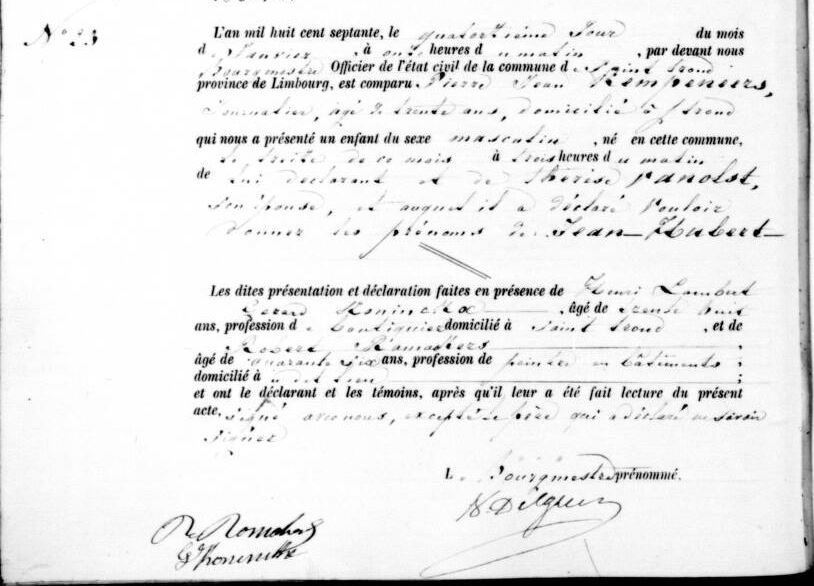 N° 23
L'an mil huit cent septante, le quatorzième jour du mois
de Janvier, à onze heures du matin, par devant nous
Bourgmestre Officier de l'état civil de la commune de Saint trond
province de Limbourg, est comparu Pierre Jean Kempeneers,
Journalier, âgé de trente ans, domicilié à St trond
qui nous a présenté un enfant du sexe masculin, né en cette commune,
le treize de ce mois à trois heures du matin
de lui déclarant et de Thérèse Vanolst,
son épouse, et auquel il a déclaré vouloir
donner les prénoms de Jean Hubert
Les dites présentation et déclaration faites en présence de Henri Lambert
Gerard Koninckx, âgé de trente huit
ans, profession de boutiquier domicilié à Saint trond, et de
Robert
âgé de quarante six ans, profession de peintre en bâtiments;
domicilié à ;
et ont le déclarant et les témoins, après qu'il leur a été fait lecture du présent
acte, signé avec nous, excepté le père qui a déclaré ne savoir
signer
Le Bourgmestre prénommé.